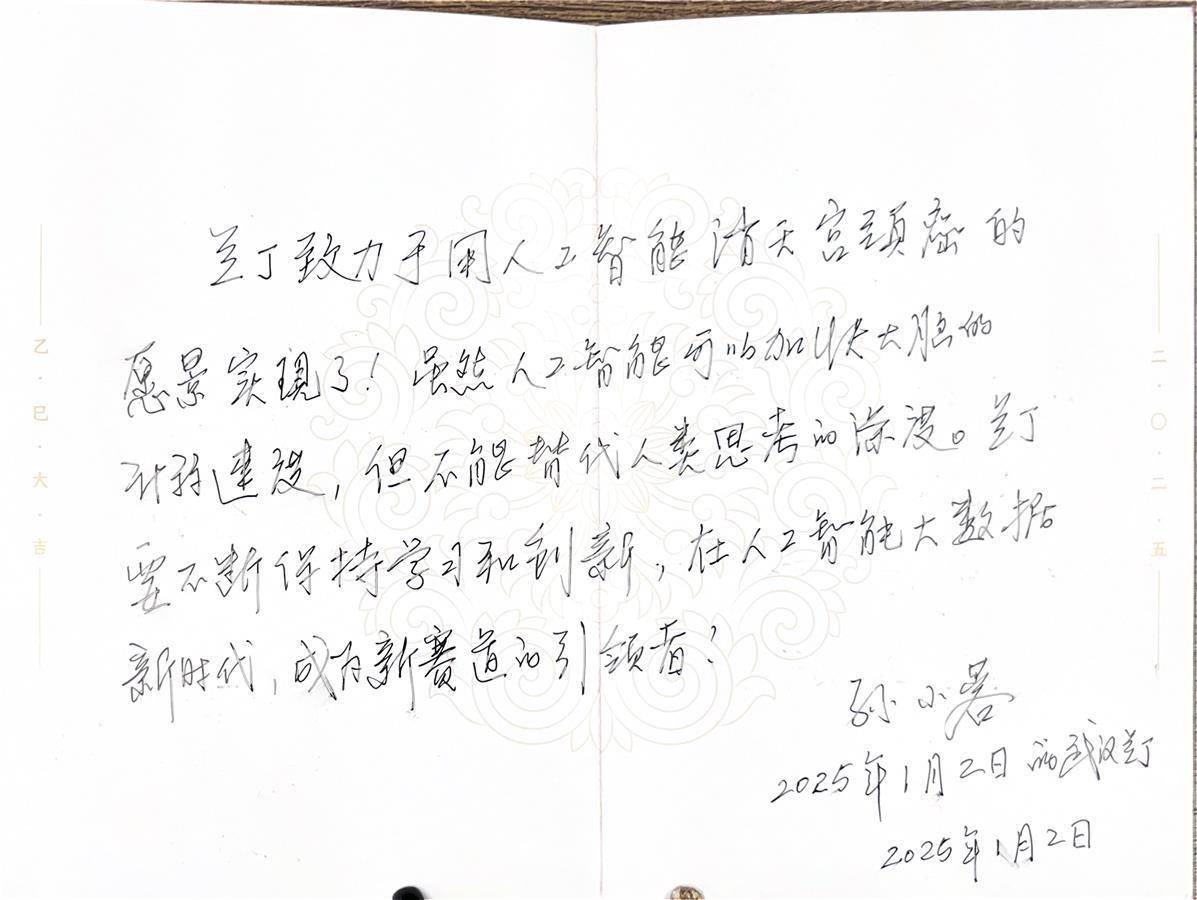 兰丁致力于用人工智能消灭宫颈癌的
愿景实现了！虽然人工智能可以加快大脑的
计算速度，但不能替代人类思考的深度。兰丁
要不断保持学习和创新，在人工智能大数据
新时代，成为新赛道的引领者！
孙小蓉
2025年1月2日 武汉兰丁
2025年1月2日
乙·巳·大·吉
二·〇·二·五